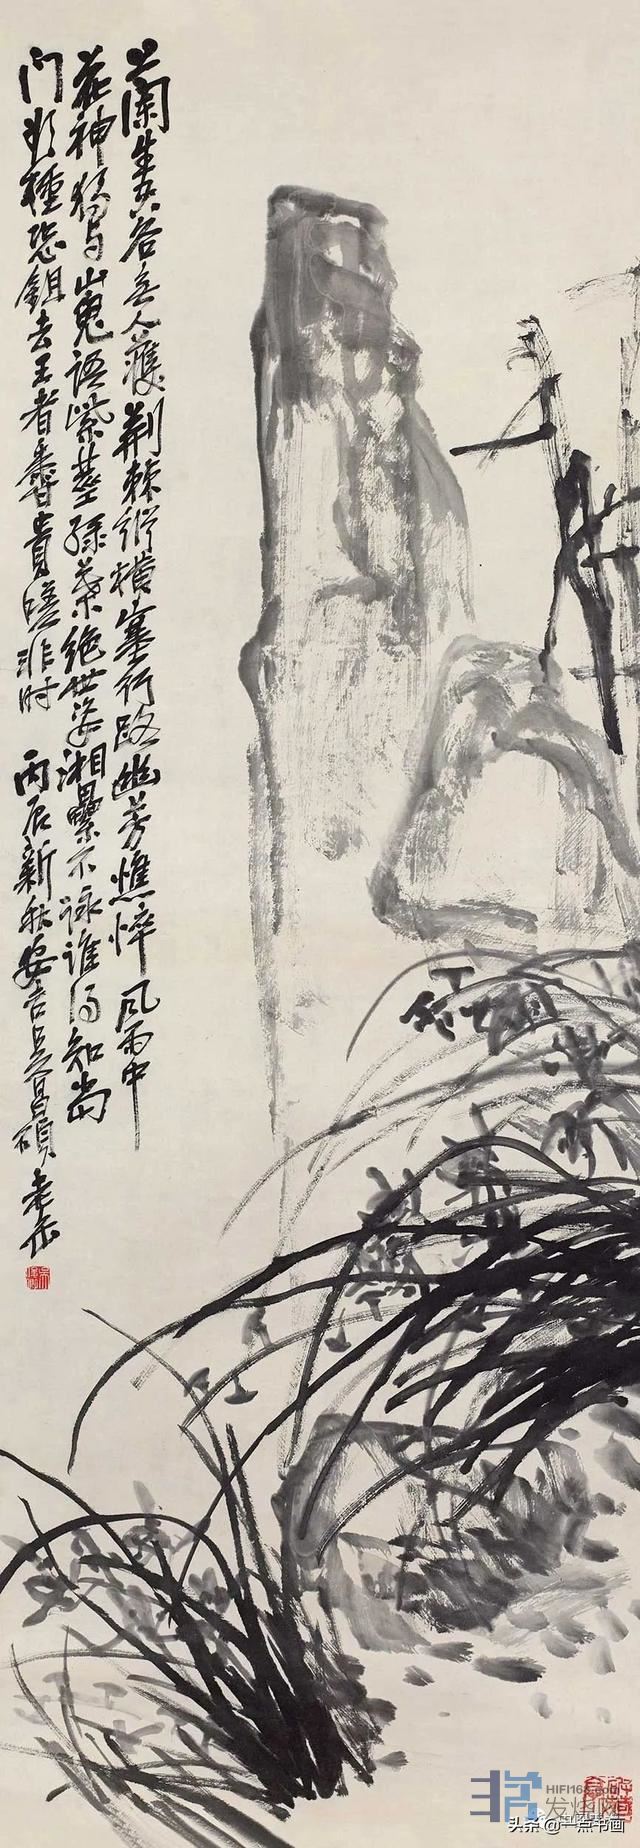 蘭生空谷無人護荆棘縱横塞行路幽芳憔悴風雨中
花神獨与山鬼語紫莖緑葉絶世姿湘纍不詠誰得知當
門欲種恐鉏去王者香貴嗟非时 丙辰新秋安吉吴昌碩老缶
头条 @一点书画